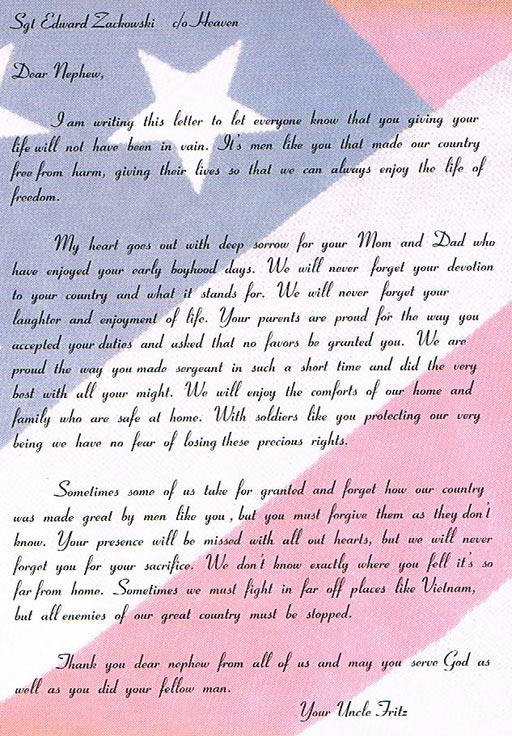 Sgt Edward Zackowski c/o Heaven
Dear Nephew,
I am writing this letter to let everyone know that you giving your
life will not have been in vain. It's men like you that made our country
free from harm, giving their lives so that we can always enjoy the life of
freedom.
My heart goes out with deep sorrow for your Mom and Dad who
have enjoyed your early boyhood days. We will never forget your devotion
to your country and what it stands for. We will never forget your
laughter and enjoyment of life. Your parents are proud for the way you
accepted your duties and asked that no favors be granted you. We are
proud the way you made sergeant in such a short time and did the very
best with all your might. We will enjoy the comforts of our home and
family who are safe at home. With soldiers like you protecting our very
being we have no fear of losing these precious rights.
Sometimes some of us take for granted and forget how our country
was made great by men like you, but you must forgive them as they don't
know. Your presence will be missed with all out hearts, but we will never
forget you for your sacrifice. We don't know exactly where you fell it's so
far from home. Sometimes we must fight in far off places like Vietnam,
but all enemies of our great country must be stopped.
Thank you dear nephew from all of us and may you serve God as
well as you did your fellow man.
Your Uncle Fritz